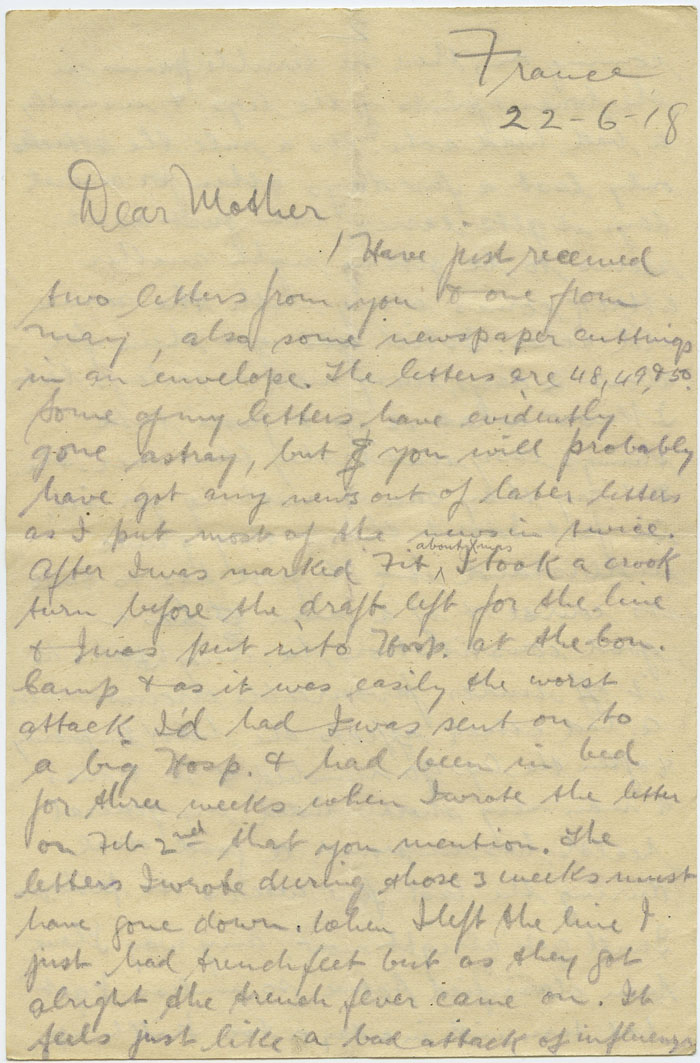 France
22-6-18
Dear Mother
I Have just received
two letters from you & one from
May, also some newspaper cuttings
in an envelope. The letters are 48, 49, & 50.
Some of my letters have evidently
gone astray, but you will probably
have got any news out of later letters
as I put most of the news in twice.
After I was marked Fit, about Xmas I took a crook
turn before the draft left for the line
& I was put into Hosp. at the Con.
Camp & as it was easily the worst
attack I'd had I was sent on to
a big Hosp. & had been in bed
for three weeks when I wrote the letter
on Feb 2nd that you mention. The
letters I wrote during those 3 weeks must
have gone down. When I left the line I
just had trenchfeet but as they got
alright the trench fever came on. It
feels just like a bad attack of influenza